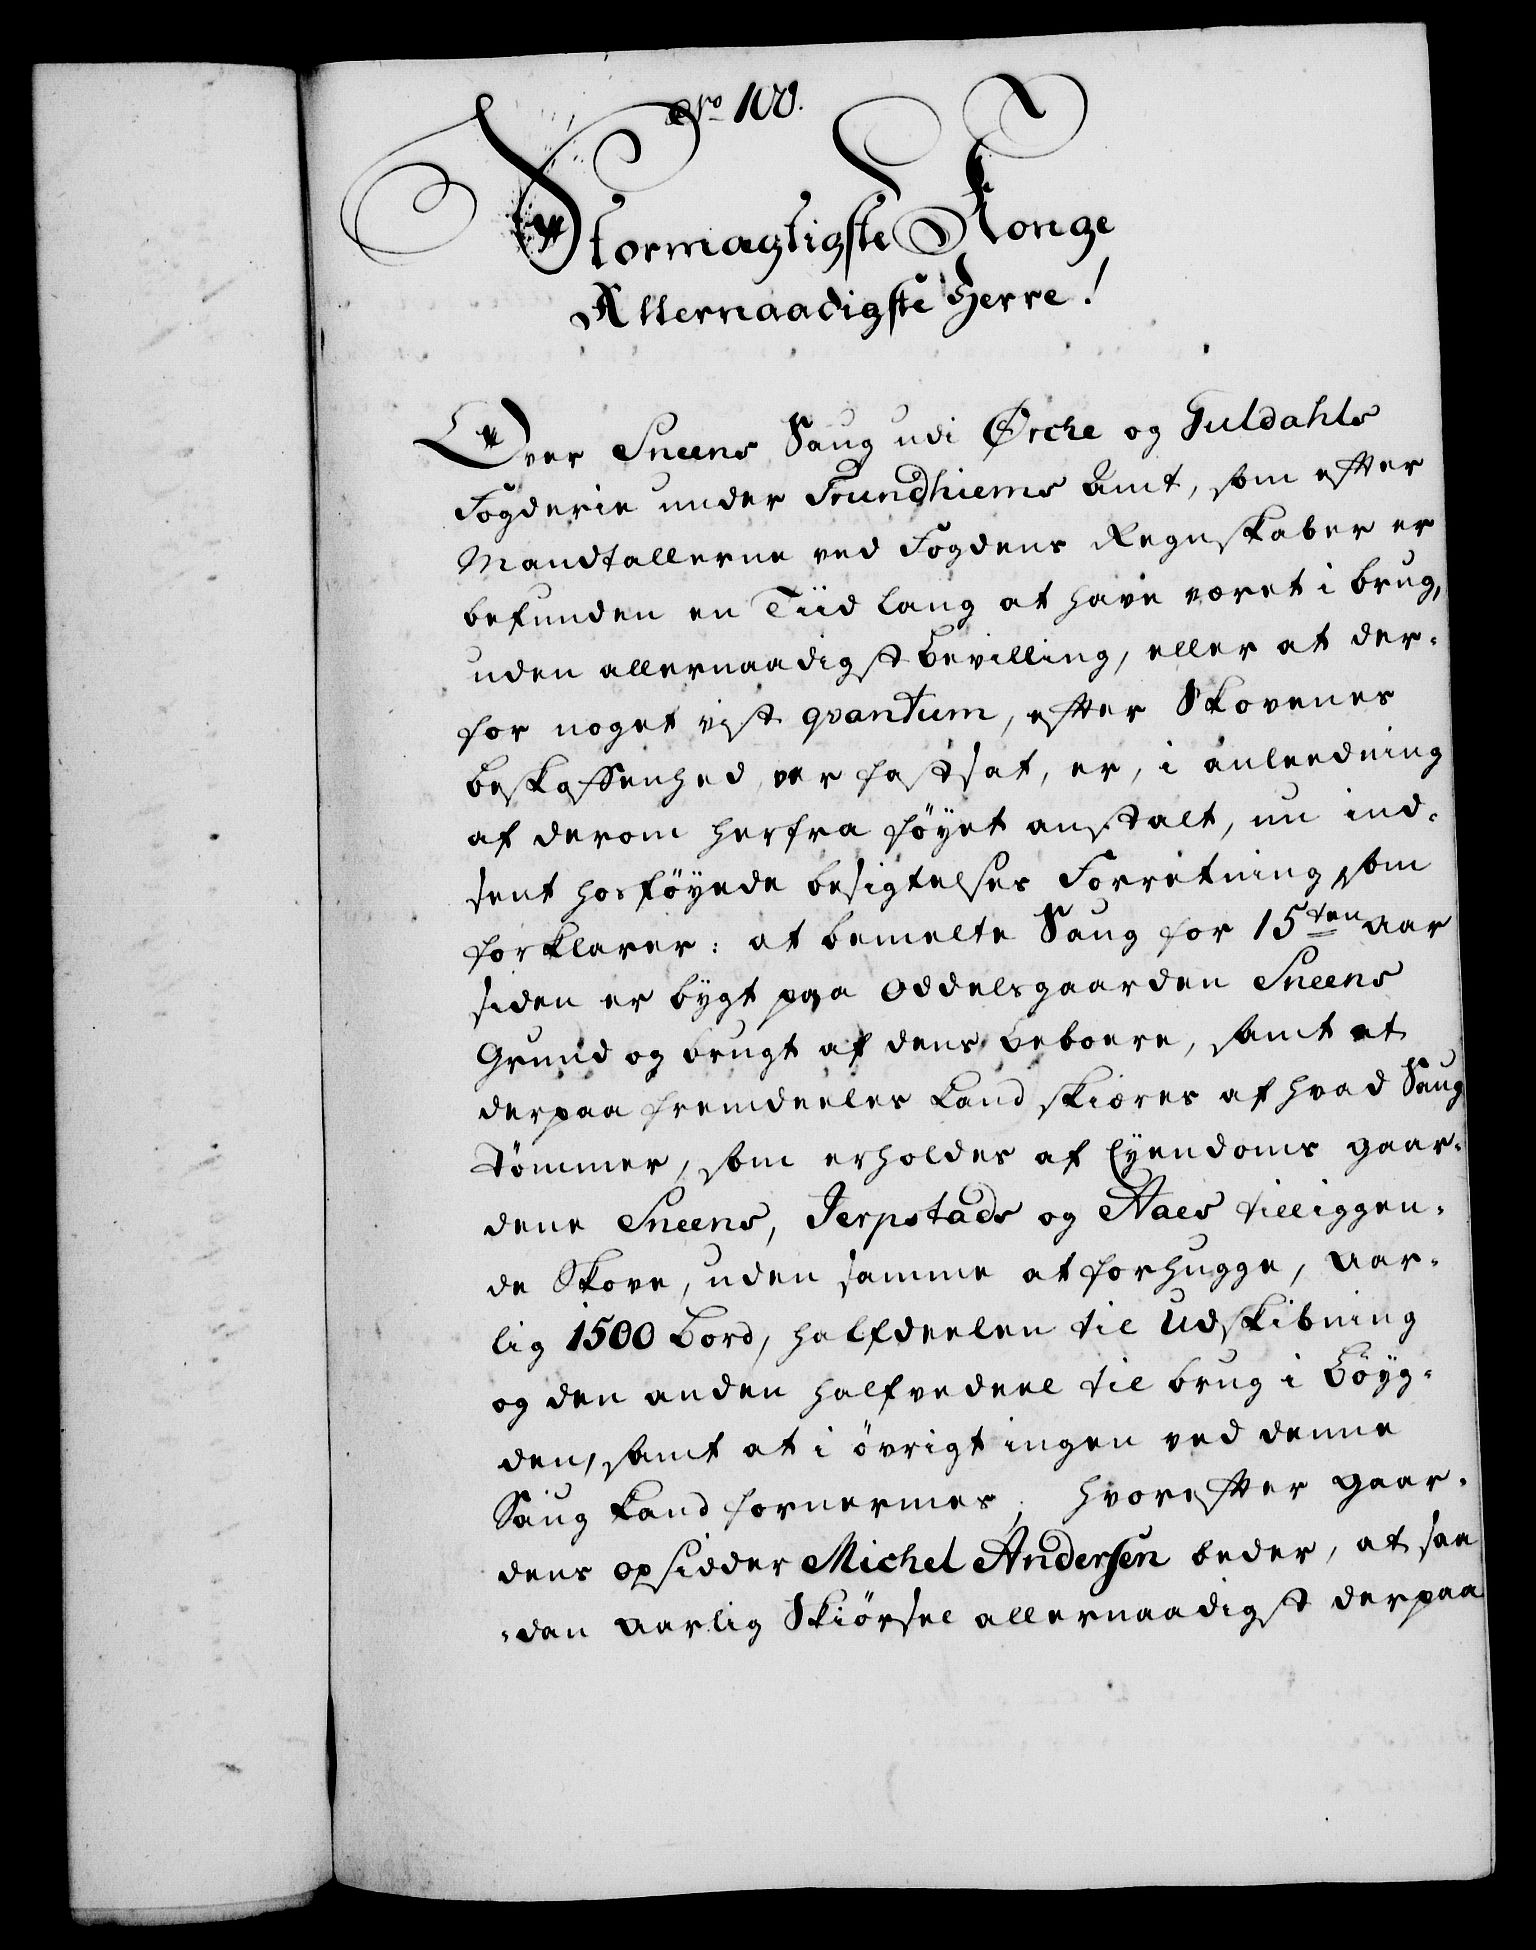 No 100.
Stormægtigste Konge
Allernaadigste Herre!
Over Sneens Saug udi Örche og Guldahls
Fogderie under Trundhiems Amt, som efter
Mandtallerne ved Fogdens Regnskaber er
befunden en Tiid lang at have været i brug,
uden allernaadigst bevilling, eller at der-
for noget vist qvantum, efter Skovenes
beskaffenhed, var fastsat, er, i anleedning
af derom herfra föyet anstalt, nu ind-
sent hosföyede besigtelses Forretning som
forklarer: at bemelte Saug for 15ten Aar
siden er bygt paa Oddelsgaarden Sneens
Grund og brugt af dens beboere, samt at
derpaa fremdeeles kand skiæres af hvad Saug
Tömmer, som erholdes af Eyendoms gaar-
dene Sneens, Jerpstads og Aaes tilliggen-
de Skove, uden samme at forhugge, aar-
lig 1500 bord, halfdeelen til Udskibning
og den anden halfvedeel til brug i böyg-
den, samt at i övrigt ingen ved denne
Saug kand fornermes; hvorefter gaar-
dens opsidder Michel Andersen beder, at saa
-dan aarlig Skiörsel allernaadigst derpaa